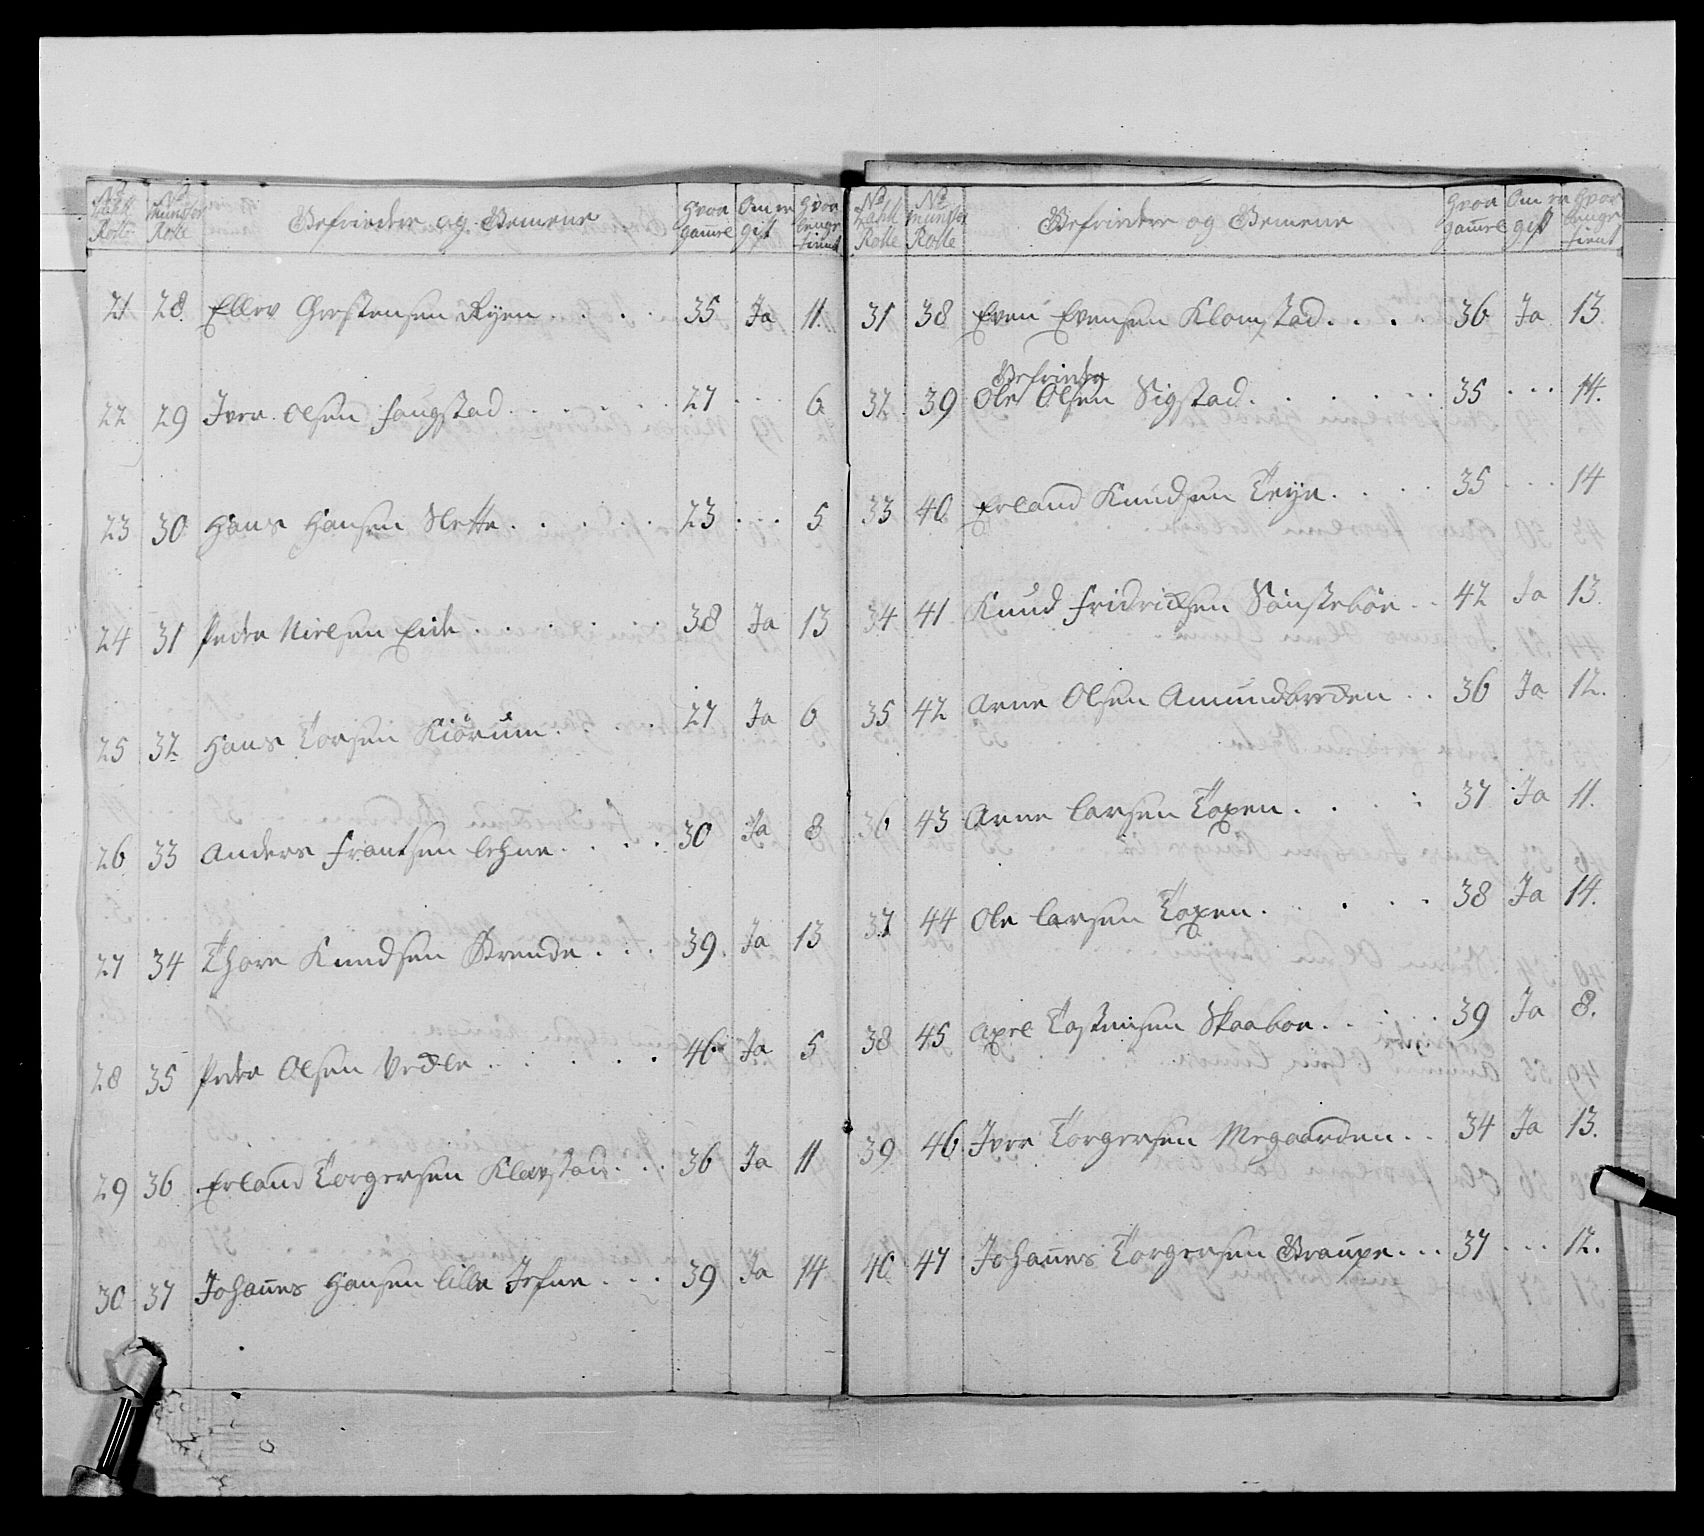 No Takk Rolle | No Munster Rolle | Gefriedere og Gemene | Hvor gamel | Om er gift | Hvor lenge tient
21 28 Ellev Grestensen Ryen . . . . 35 Ja 11.
22 29 Iver Olsen Haugstad . . . . . . 27 . . . 6
23 30 Hans Hansen Slette . . . . . . 23 . . . 5
24 31 Peder Nielsen Eide . . . . . . 38 Ja 13
25 32 Hans Torsen Kiörum . . . . 27 Ja 6
26 33 Anders Frantsen Lehne . . . . 30 Ja 8
27 34 Thore Knudsen Brende . . . 39 Ja 13
28 35 Peder Olsen Vedle . . . . . . 46 Ja 5
29 36 Erland Torgersen Klevstad . . . 36 Ja 11
30 37 Johanes Hansen Lille Jefne . . . 39 Ja 14
No Takk Rolle | No Munster Rolle | Gefriedere og Gemene | Hvor gamel | Om er gift | Hvor lenge tient
31 38 Even Evensen Klomstad . . . . 36 Ja 13
Gefrieder
32 39 Ole Olsen Sigstad . . . . . . 35 . . . 14.
33 40 Erland Knudsen Teye . . . . 35 . . . 14
34 41 Knud Fridrichsen Sönsteböe . . 42 Ja 13
35 42 Arne Olsen Amundbreden . . 36 Ja 12.
36 43 Arne Larsen Toxen . . . . 37 Ja 11.
37 44 Ole Larsen Toxen . . . . . . 38 Ja 14.
38 45 Axel Tostensen Skaaboe . . . . . 39 Ja 8.
39 46 Iver Torgersen Megaarden . . 34 Ja 13.
40 47 Johanes Torgersen Graupe . . . 37 . . . 12.